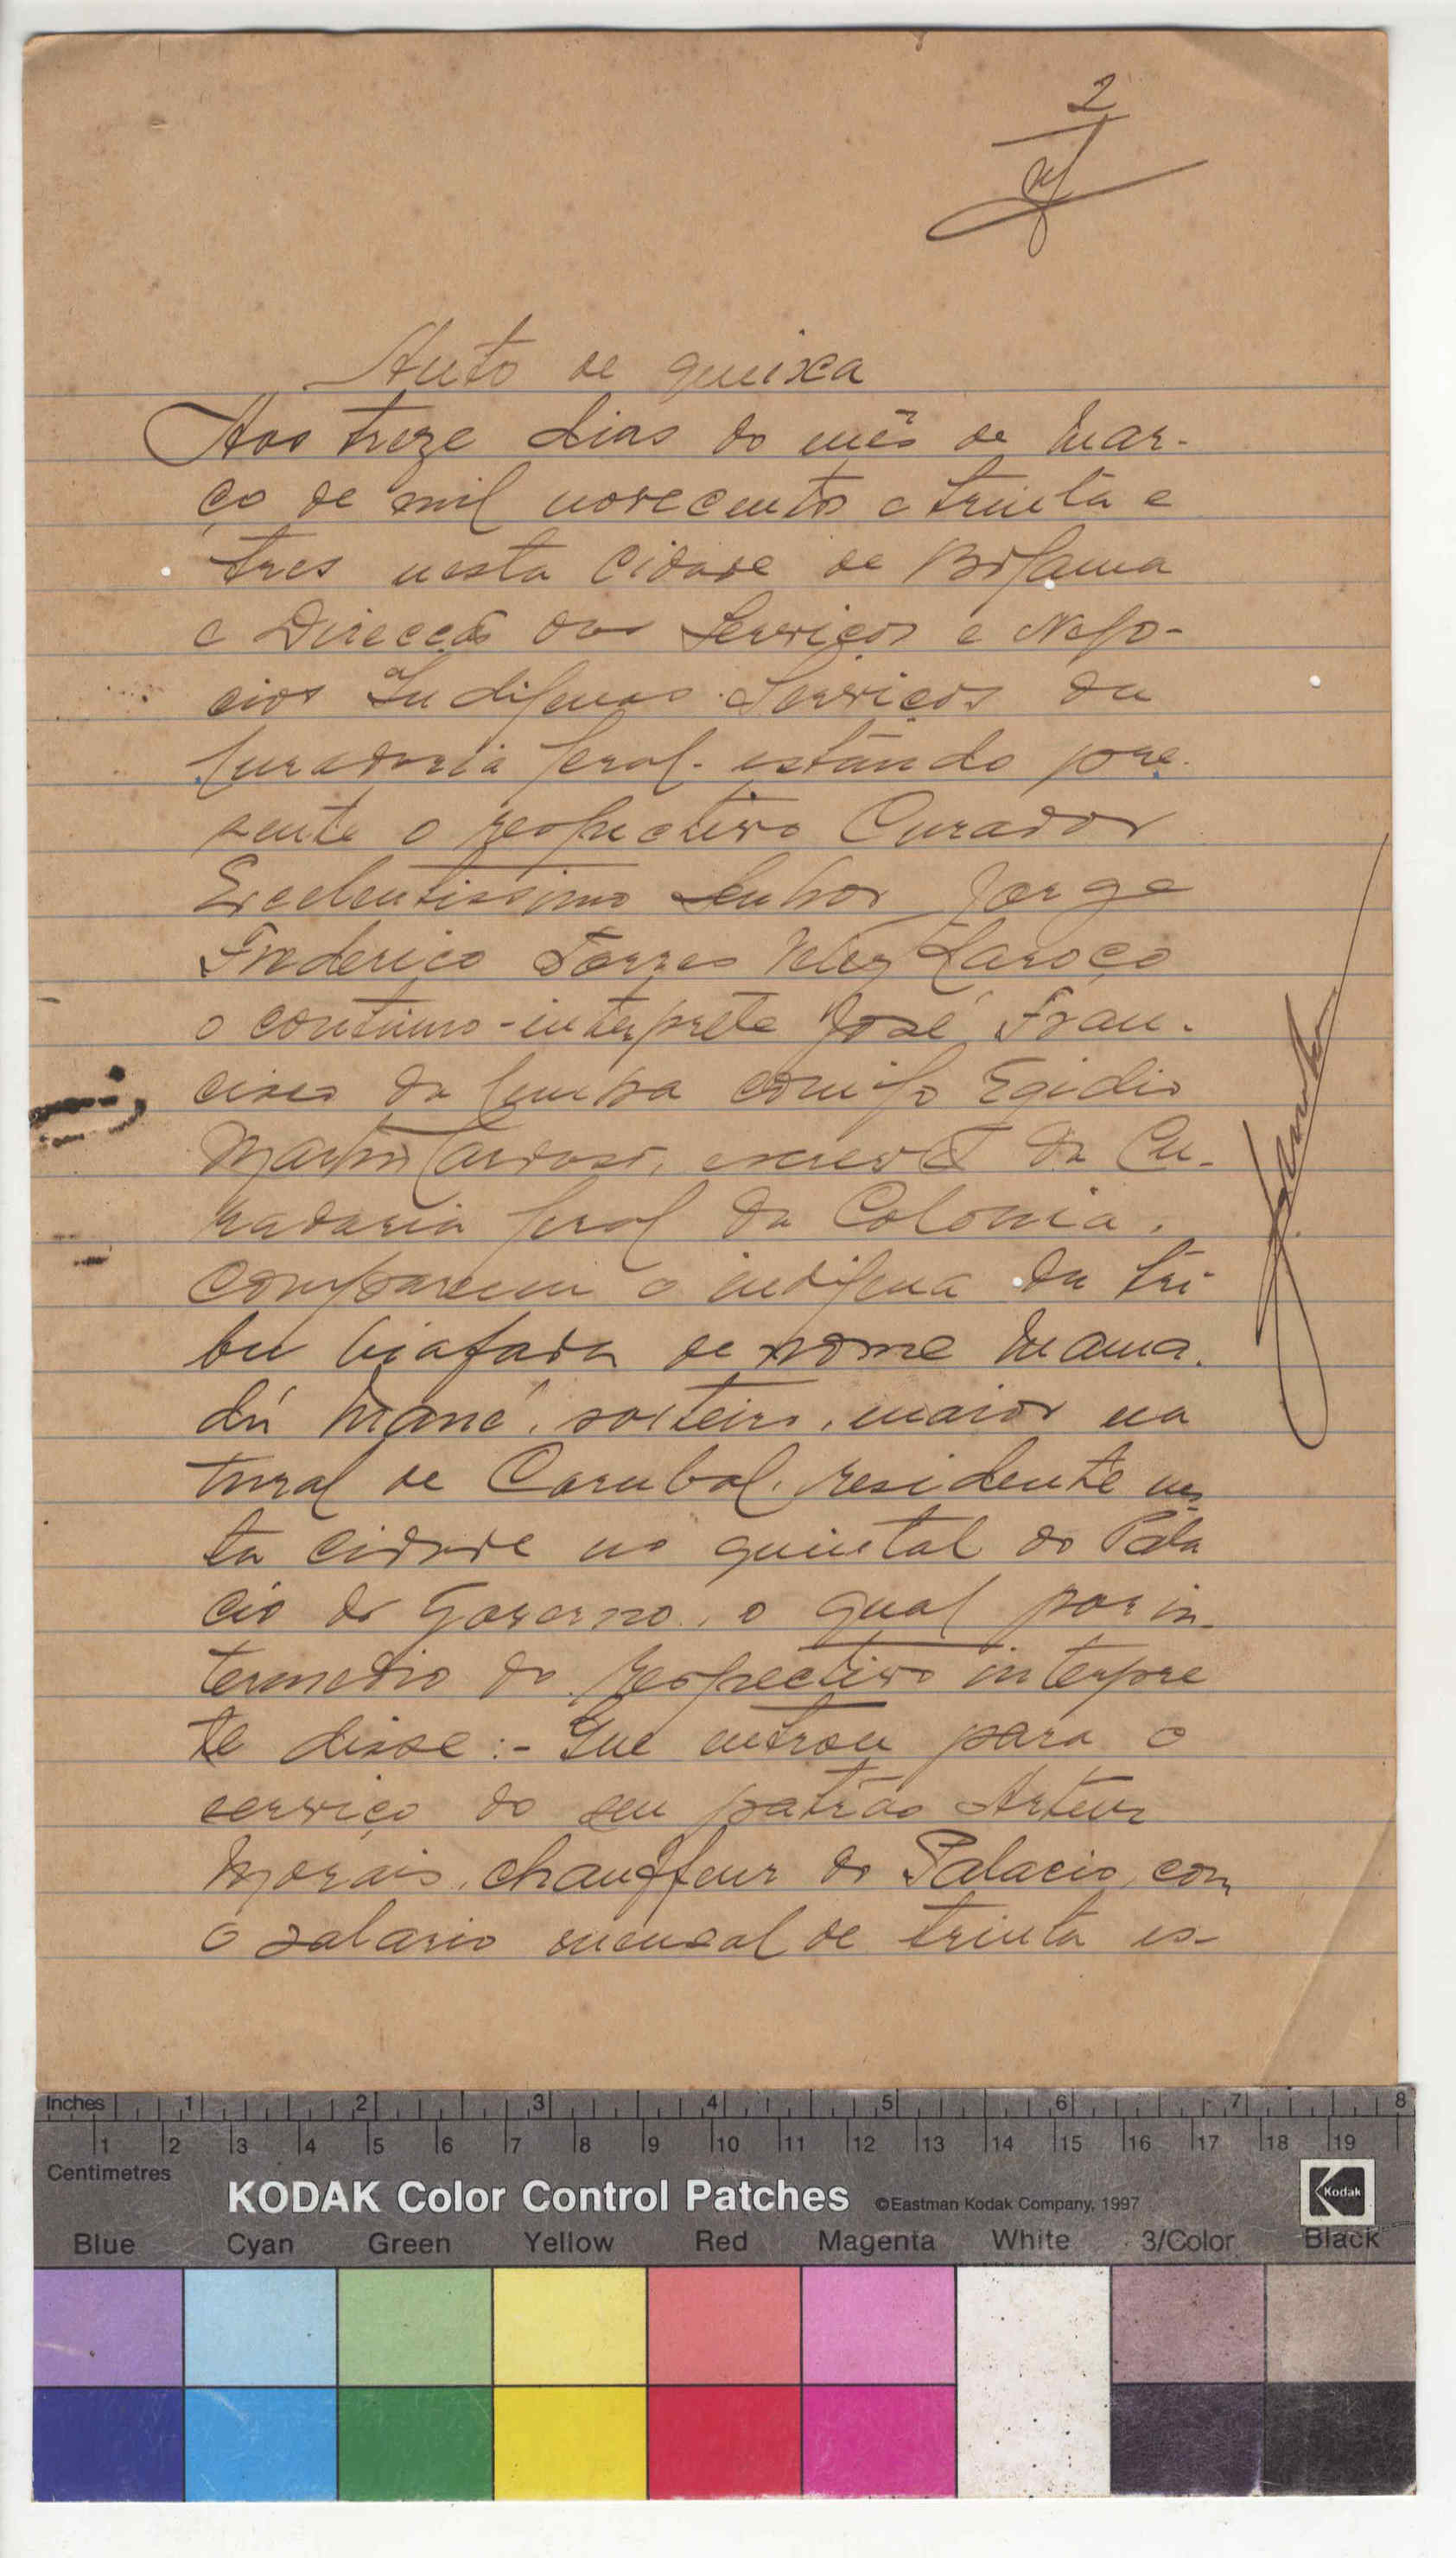 2
Auto de queixa
Aos treze dias do mês de Mar-
ço de mil novecentos e trinta e
tres nesta Cidade de Bolama
e Direcção dos Serviços e Nego-
cios Indigenas Serviços da
Curadoria Geral. estando pre-
sente o respectivo Curador
Excelentissimo Senhor Jorge
Frederico Torres Velez Caroço
o contínuo-interprete José Fran-
cisco da Cunha comigo Egidio
Martins Cardoso, escrivão da Cu-
radoria Geral da Colonia,
compareceu o indigena da tri-
bu biafada de nome Mama-
dú Mané, solteiro, maior na
tural de Corubal, residente nes
ta cidade no quintal do Pala
cio do Governo, o qual por in-
termedio do respectivo interpre
te disse:- Que entrou para o
serviço do seu patrão Artur
Morais, chauffeur do Palacio, com
o salario mensal de trinta es-
Inches 1 2 3 4 5 6 7 8
1 2 3 4 5 6 7 8 9 10 11 12 13 14 15 16 17 18 19
Centimetres
KODAK Color Control Patches ©Eastman Kodak Company, 1997 Kodak
Blue Cyan Green Yellow Red Magenta White 3/Color Black